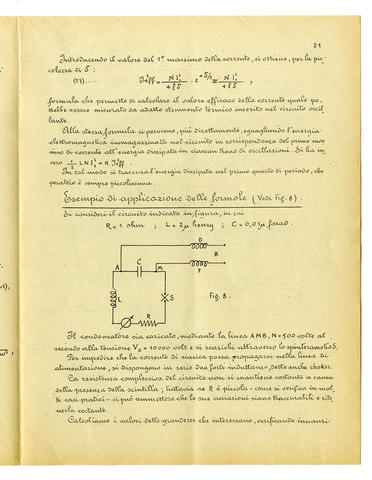 21
Introducendo il valore del 1° massimo della corrente, si ottiene, per la pic-
colezza di δ :
formula che permette di calcolare il valore efficace della corrente quale po-
trebbe essere misurato da adatto strumento termico inserito nel circuito oscil-
lante.
Alla stessa formula si perviene, più direttamente, eguagliando l'energia
elettromagnetica immagazzinata nel circuito in corrispondenza del primo mas-
simo di corrente all'energia dissipata in ciascun treno di oscillazioni. Si ha in-
vero
In tal modo si trascura l'energia dissipata nel primo quarto di periodo, che
peraltro è sempre piccolissima.
Esempio di applicazione delle formole (Vedi fig. 8).
Si consideri il circuito indicato in figura, in cui
R = 1 ohm ; L = 2μ henry ; C = 0,03μ farad.
D
A C M B
F
L S
R
Fig. 8.
Il condensatore sia caricato, mediante la linea AMB, N = 500 volte al
secondo alla tensione V₀ = 10000 volt e si scarichi attraverso lo spinterometro S.
Per impedire che la corrente di scarica possa propagarsi nella linea di
alimentazione, si dispongono in serie due forti induttanze, dette anche chokes.
La resistenza complessiva del circuito non si mantiene costante a causa
della presenza della scintilla; tuttavia se R è piccola - come si verifica in mol-
ti casi pratici - si può ammettere che le sue variazioni siano trascurabili e rite-
nerla costante.
Calcoliamo i valori delle grandezze che interessano, verificando innanzi